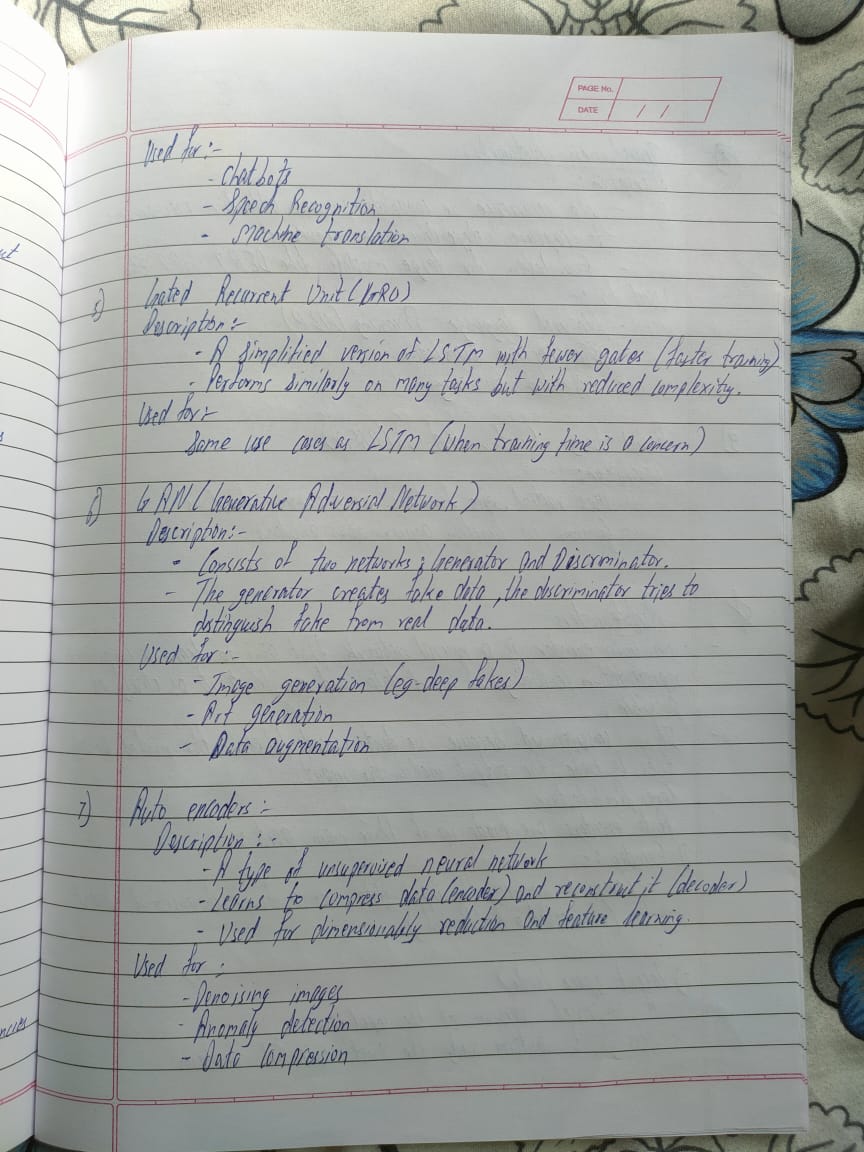 PAGE No.
DATE / /
Used for :-
- Chatbots
- Speech Recognition
- Machine translation
5) Gated Recurrent Unit (GRU)
Description :-
- A simplified version of LSTM with fewer gates (faster training)
- Performs similarly on many tasks but with reduced complexity.
Used for :-
Same use cases as LSTM (when training time is a concern)
6) GAN ( Generative Adversial Network )
Description:-
- Consists of two networks : Generator and Discriminator.
- The generator creates fake data , the discriminator tries to
distinguish fake from real data.
Used for :-
- Image generation (eg-deep fakes)
- Art generation
- Data augmentation
7) Auto encoders :-
Description : -
- A type of unsupervised neural network
- Learns to compress data (encoder) and reconstruct it (decoder)
- Used for dimensionality reduction and feature learning.
Used for :
- Denoising images
- Anomaly detection
- Data compression